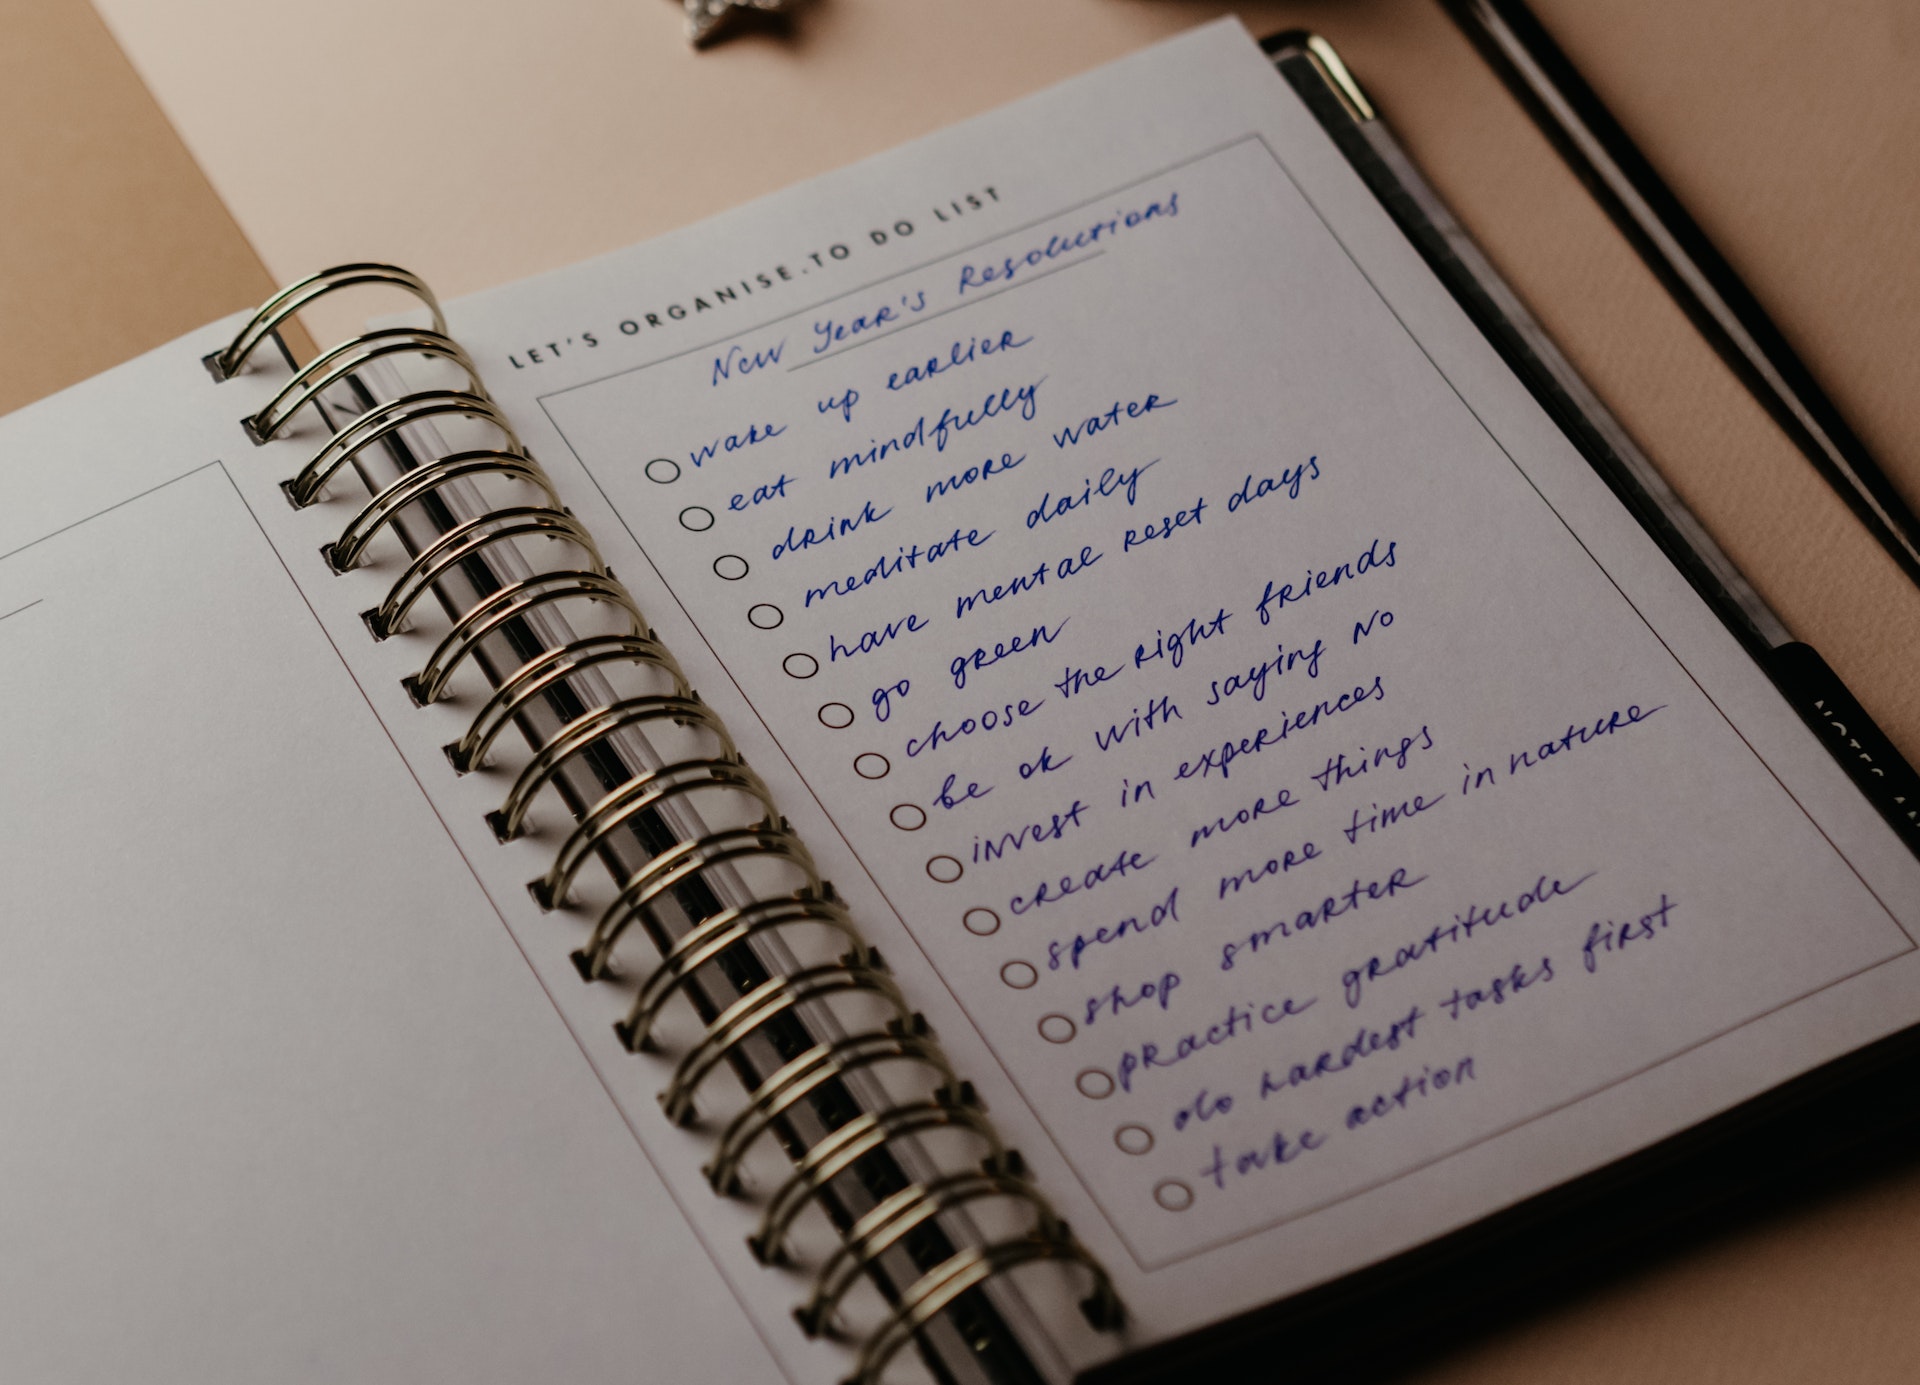 LET'S ORGANISE.TO DO LIST
New Year's Resolutions
wake up earlier
eat mindfully
drink more water
meditate daily
have mental reset days
go green
choose the right friends
be ok with saying no
invest in experiences
create more things
spend more time in nature
shop smarter
practice gratitude
do hardest tasks first
take action